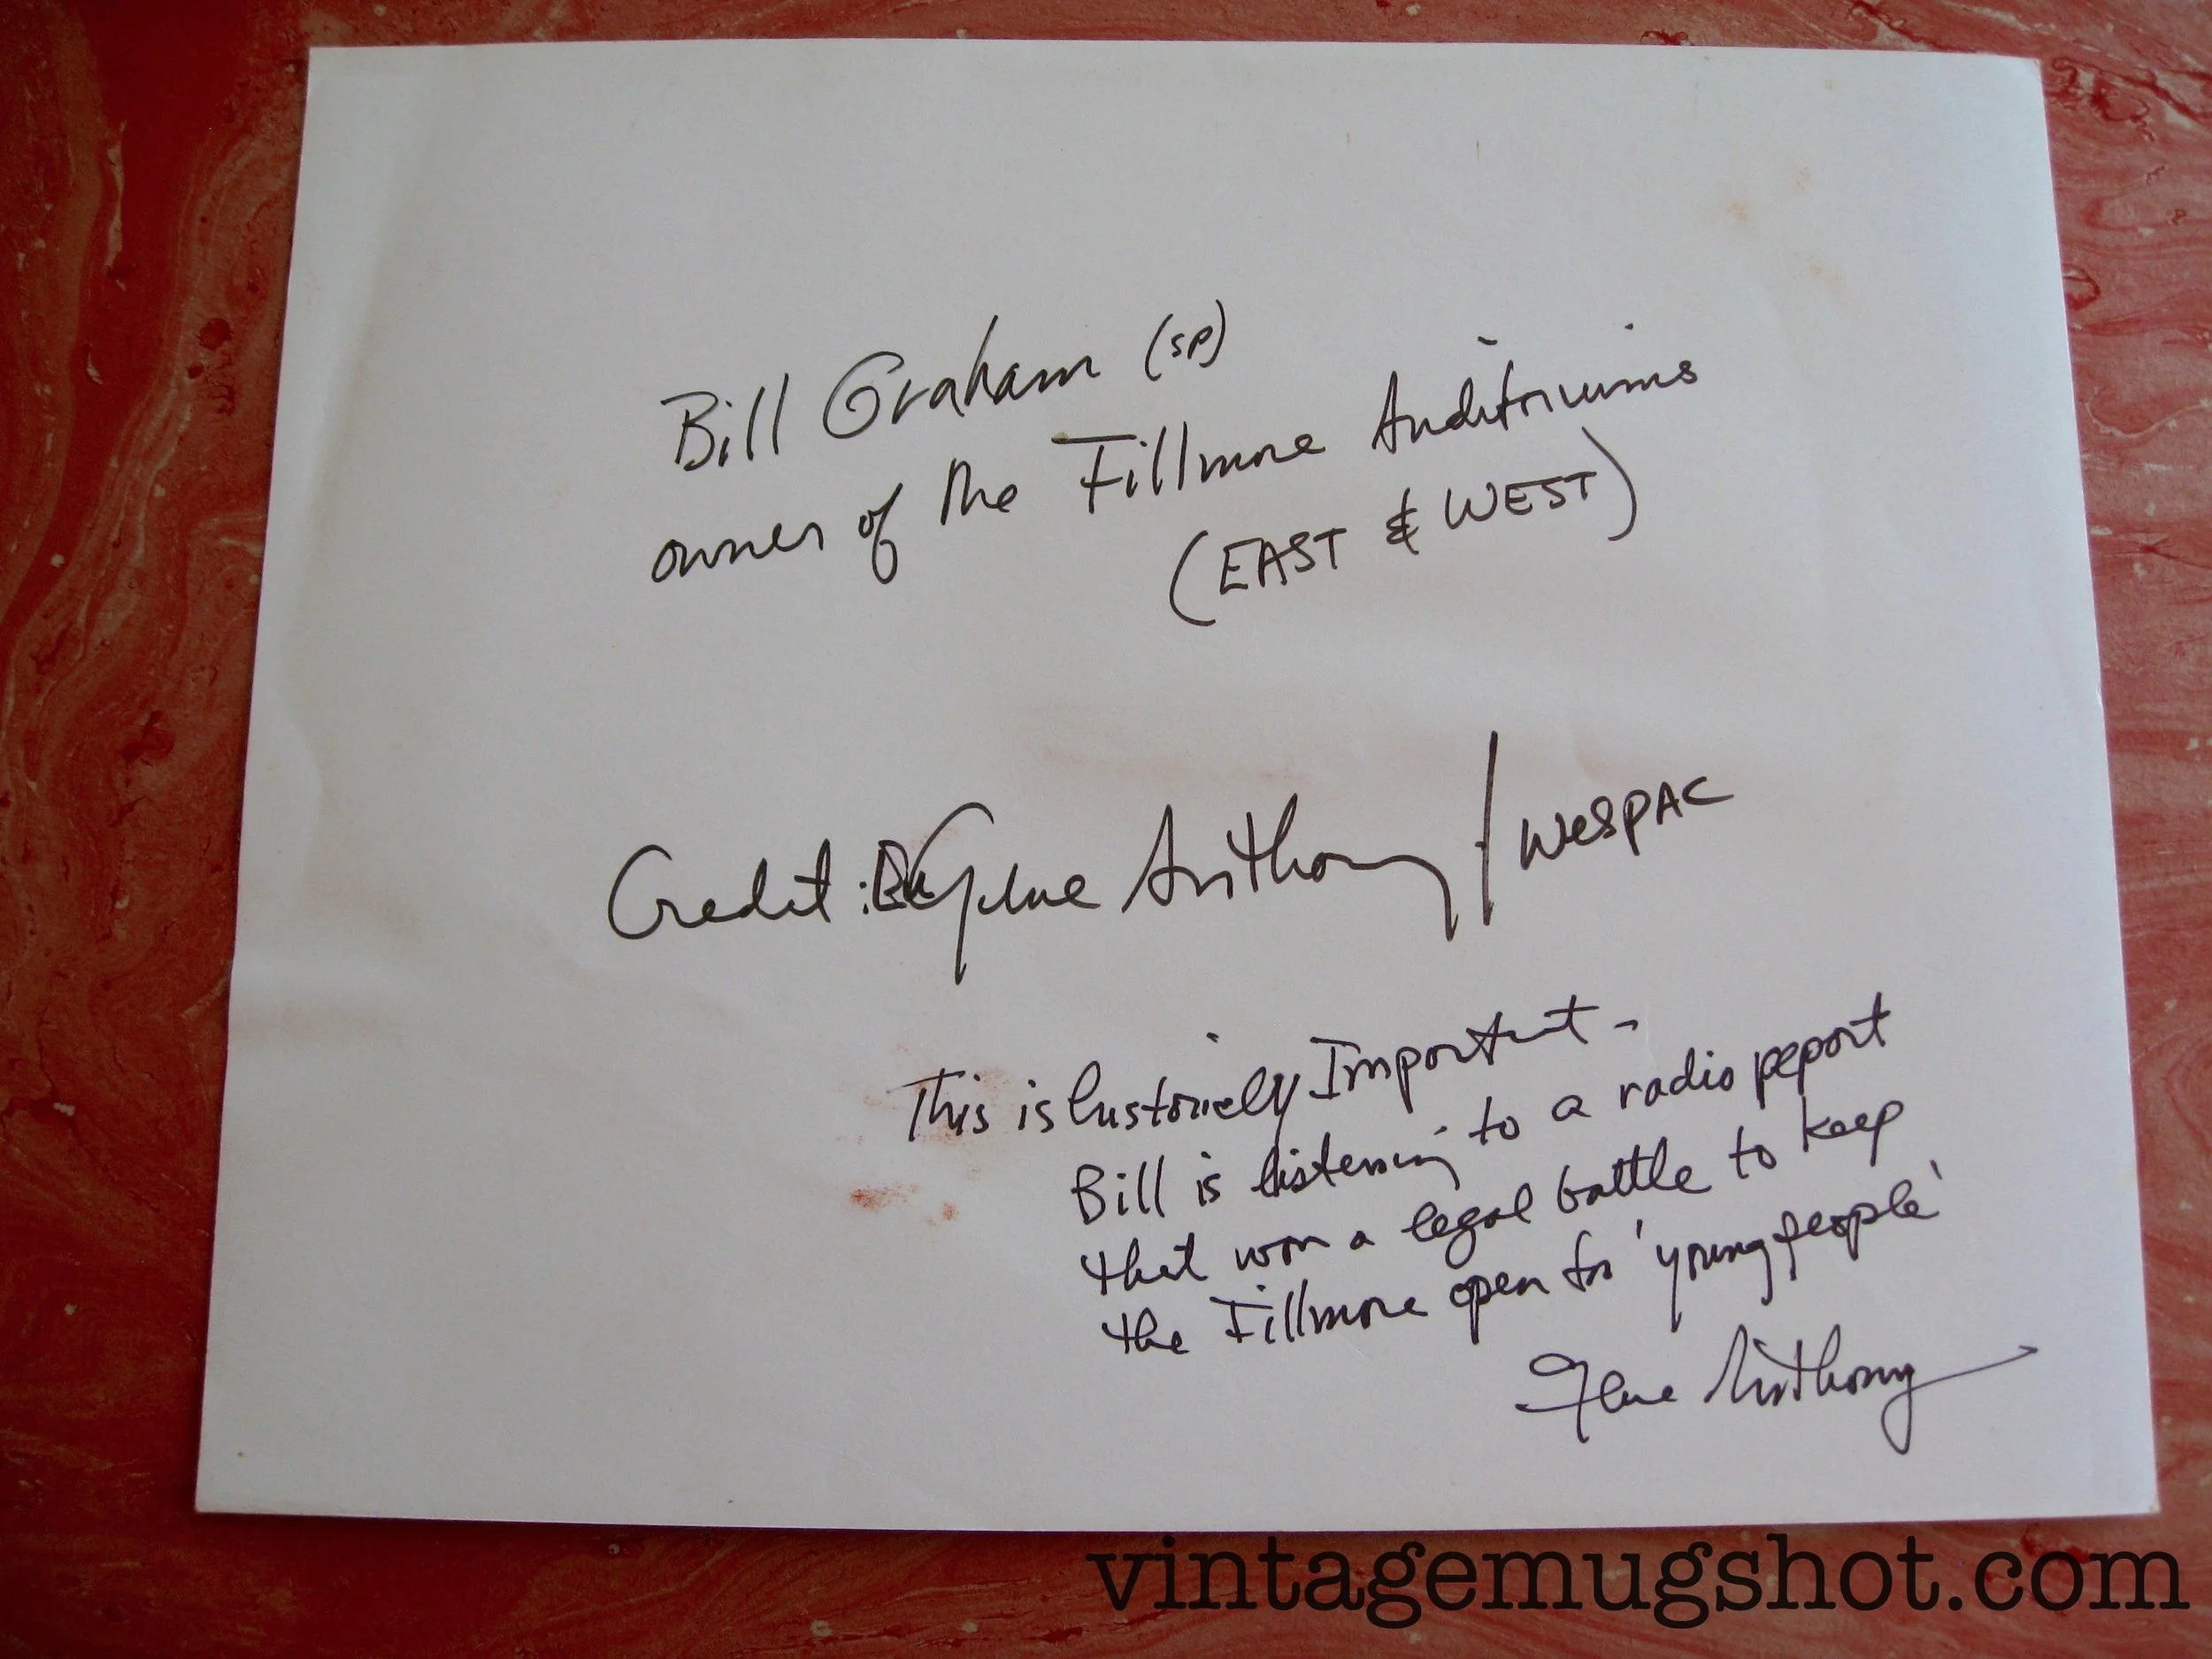 Bill Graham (SP)
owner of the Fillmore Auditoriums
(EAST & WEST)
Credit: Gene Anthony / WESPAC
This is historicly Important -
Bill is listening to a radio report
that won a legal battle to keep
the Fillmore open for 'young people'
Gene Anthony
vintagemugshot.com